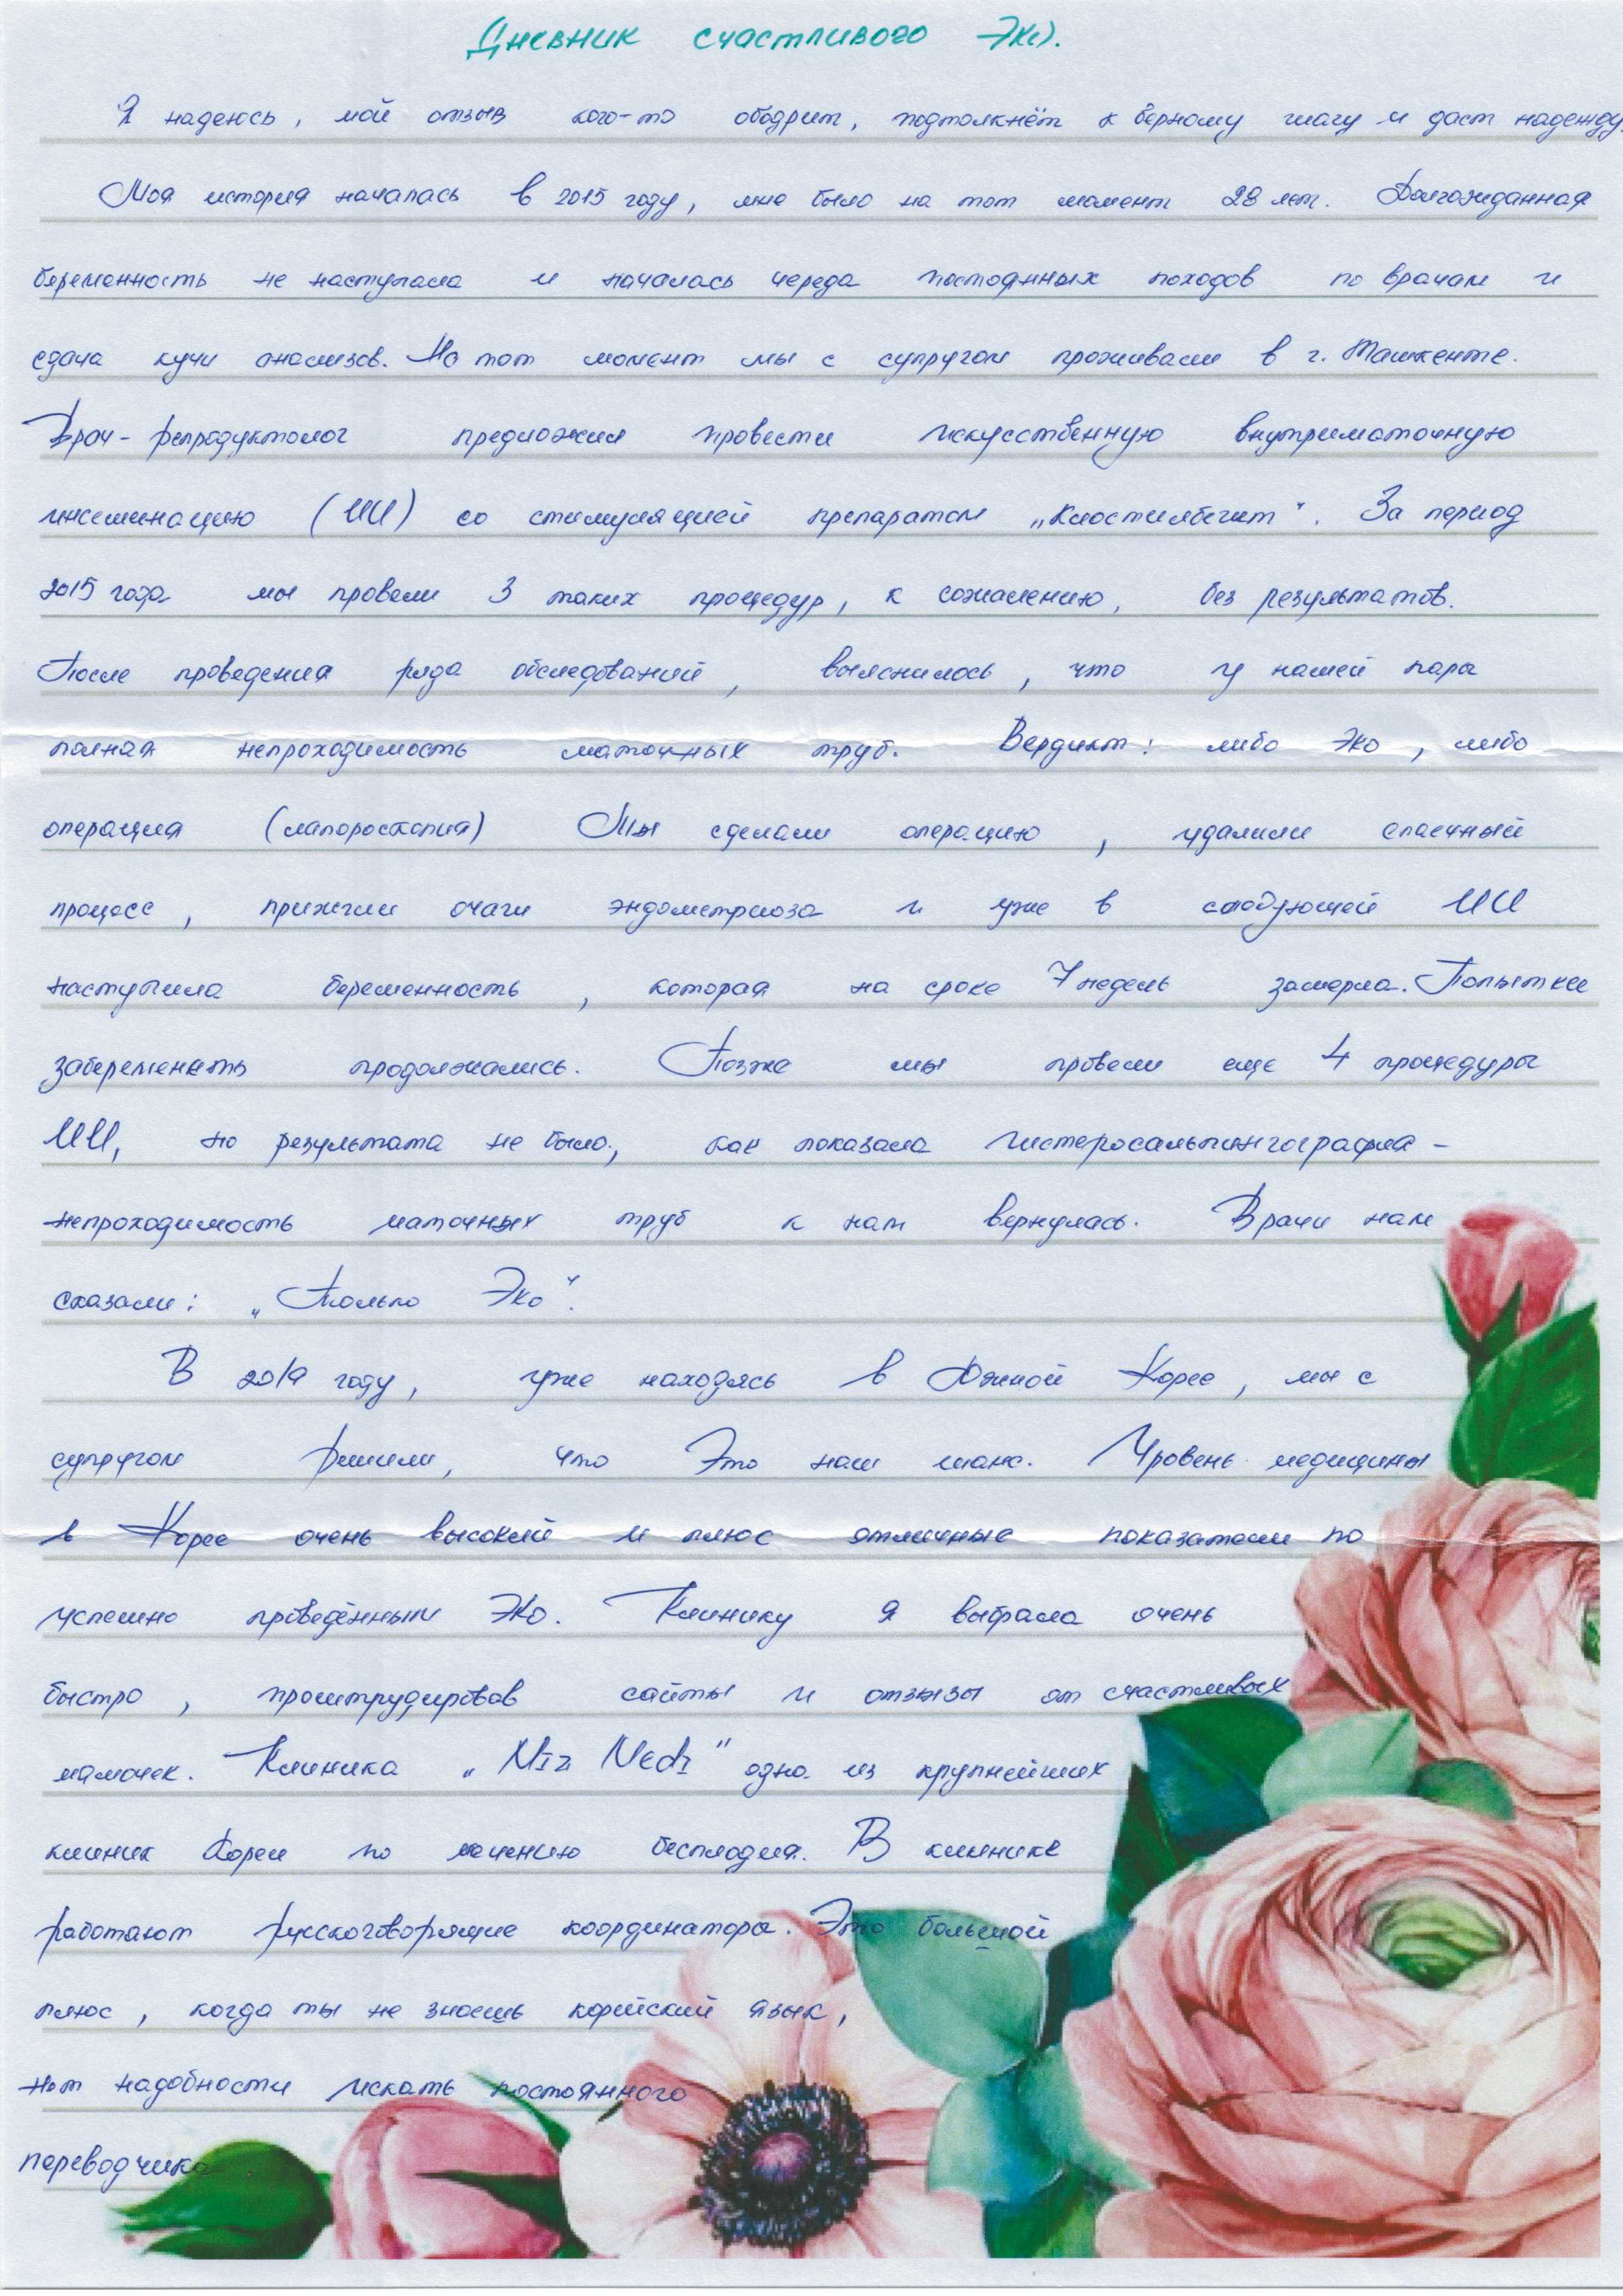 Дневник счастливого Эко.
Я надеюсь, мой отзыв кого-то ободрит, подтолкнёт к верному шагу и даст надежду
Моя история началась в 2015 году, мне было на тот момент 28 лет. Долгожданная
беременность не наступала и началась череда постоянных походов по врачам и
сдача кучи анализов. На тот момент мы с супругом проживали в г. Ташкенте.
Врач-репродуктолог предложил провести искусственную внутриматочную
инсеминацию (ИИ) со стимуляцией препаратом „Клостилбегит“. За период
2015 года мы провели 3 таких процедур, к сожалению, без результатов.
После проведения ряда обследований, выяснилось, что у нашей пары
полная непроходимость маточных труб. Вердикт: либо Эко, либо
операция (лапороскопия) Мы сделали операцию, удалили спаечный
процесс, прижгли очаги эндометриоза и уже в следующей ИИ
наступила беременность, которая на сроке 7 недель замерла. Попытки
забеременеть продолжались. Позже мы провели еще 4 процедуры
ИИ, но результата не было, как показала гистеросальпингография -
непроходимость маточных труб к нам вернулась. Врачи нам
сказали: „Только Эко“.
В 2019 году, уже находясь в Южной Корее, мы с
супругом решили, что Это наш шанс. Уровень медицины
в Корее очень высокий и плюс отличные показатели по
успешно проведённым Эко. Клинику я выбрала очень
быстро, проштрудировав сайты и отзывы от счастливых
мамочек. Клиника „Miz Medi“ одна из крупнейших
клиник Кореи по лечению бесплодия. В клинике
работают русскоговорящие координаторы. Это большой
плюс, когда ты не знаешь корейский язык,
нет надобности искать постоянного
переводчика